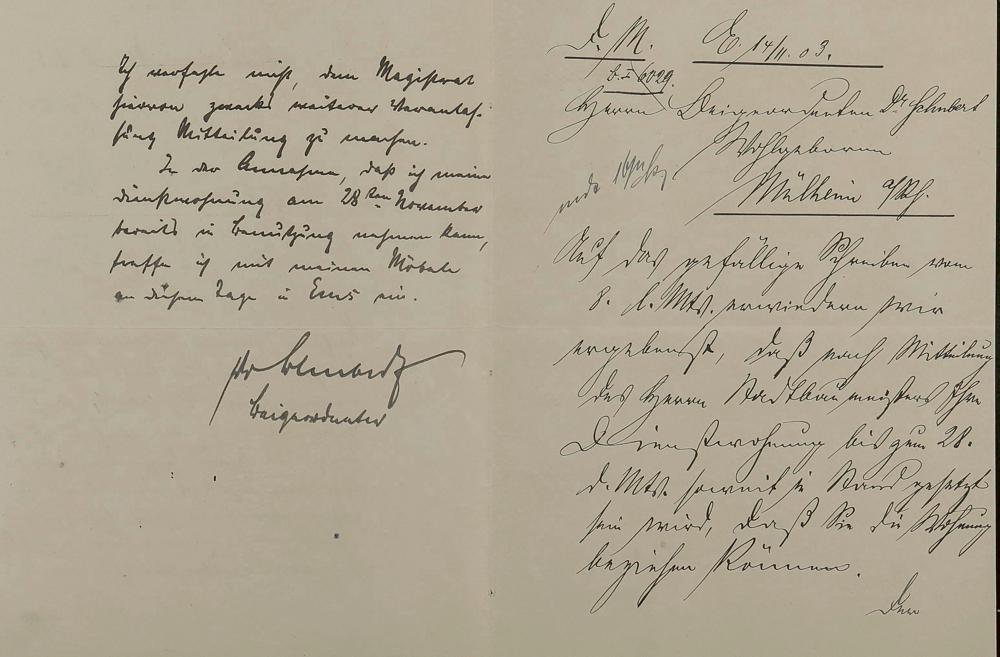 Ich verfehle nicht, dem Magistrat
hiervon zwecks weiterer Veranlas-
sung Mitteilung zu machen.
In der Annahme, daß ich meine
Dienstwohnung am 28ten November
bereits in Benutzung nehmen kann,
treffe ich mit meinen Möbeln
an diesem Tage in Ems ein.
Dr Schubert
Beigeordneter
D. M.
E. 14/11. 03.
6029.
Herrn Beigeordneten Dr Schubert
Wohlgeboren
Mülheim a/Rh.
Auf das gefällige Schreiben vom
8. l. Mts. erwiedern wir
ergebenst, daß nach Mitteilung
des Herrn Stadtbaumeisters Ihre
Dienstwohnung bis zum 28.
d. Mts. soweit in Stand gesetzt
sein wird, daß Sie die Wohnung
beziehen können.
Der